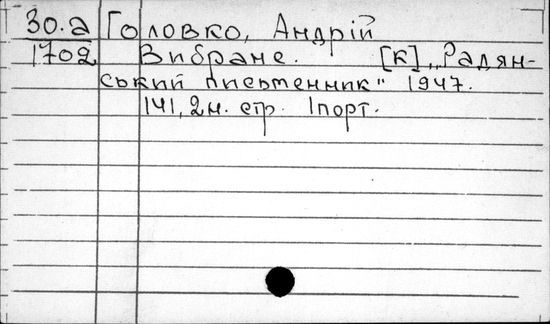 30.а Головко, Андрій
1702 Вибране. [К] „Радян-
ський письменник" 1947.
141, 2н. стр. 1порт.